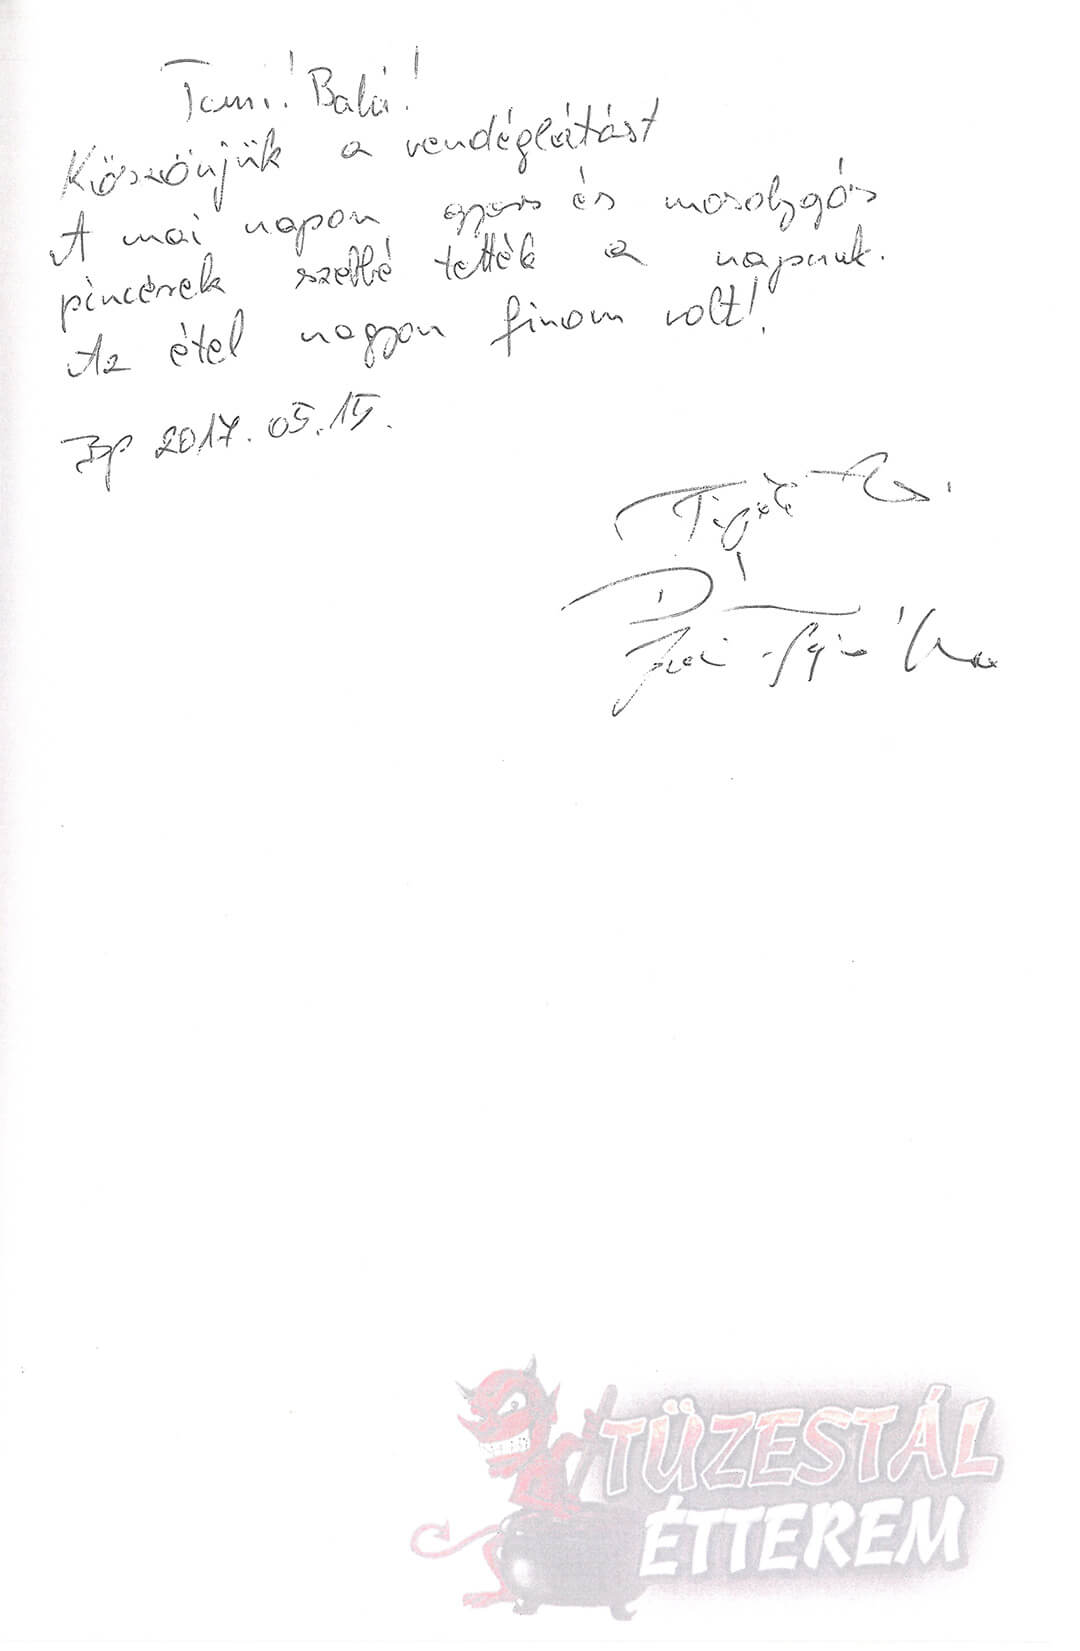 Tomi! Balá!
Köszönjük a vendéglátást
A mai napon gyors és mosolygós
pincérek szebbé tették a napunk.
Az étel nagyon finom volt!
Bp 2017.05.15.
TÜZESTÁL
ÉTTEREM